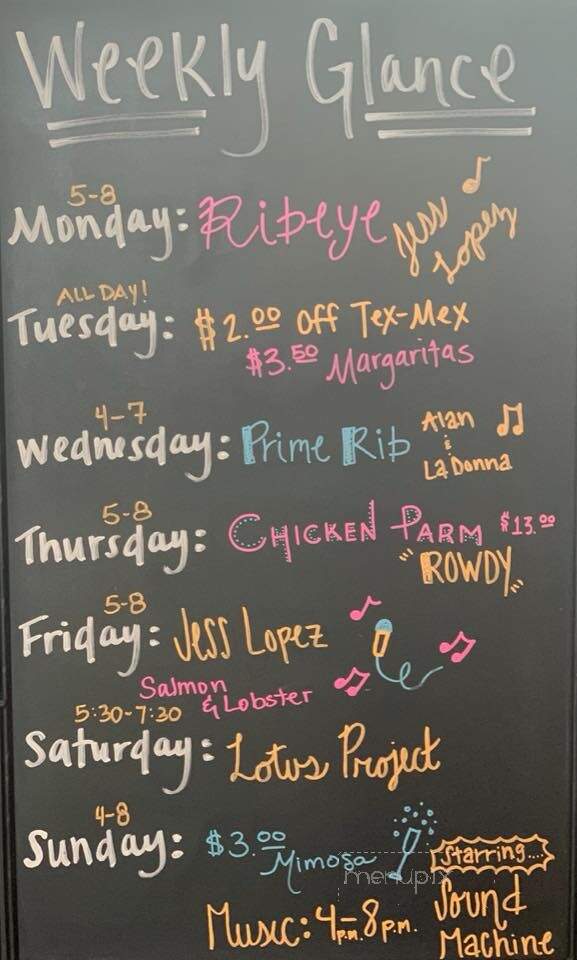 Weekly Glance
5-8
Monday: Ribeye Jess Lopez
ALL DAY!
Tuesday: $2.00 off Tex-Mex
$3.50 Margaritas
4-7
Wednesday: Prime Rib Alan & LaDonna
5-8
Thursday: Chicken Parm $13.00
"ROWDY"
5-8
Friday: Jess Lopez
Salmon & Lobster
5:30-7:30
Saturday: Lotus Project
4-8
Sunday: $3.00 Mimosa
Starring....
Music: 4p.m.-8p.m. Sound Machine
menupix